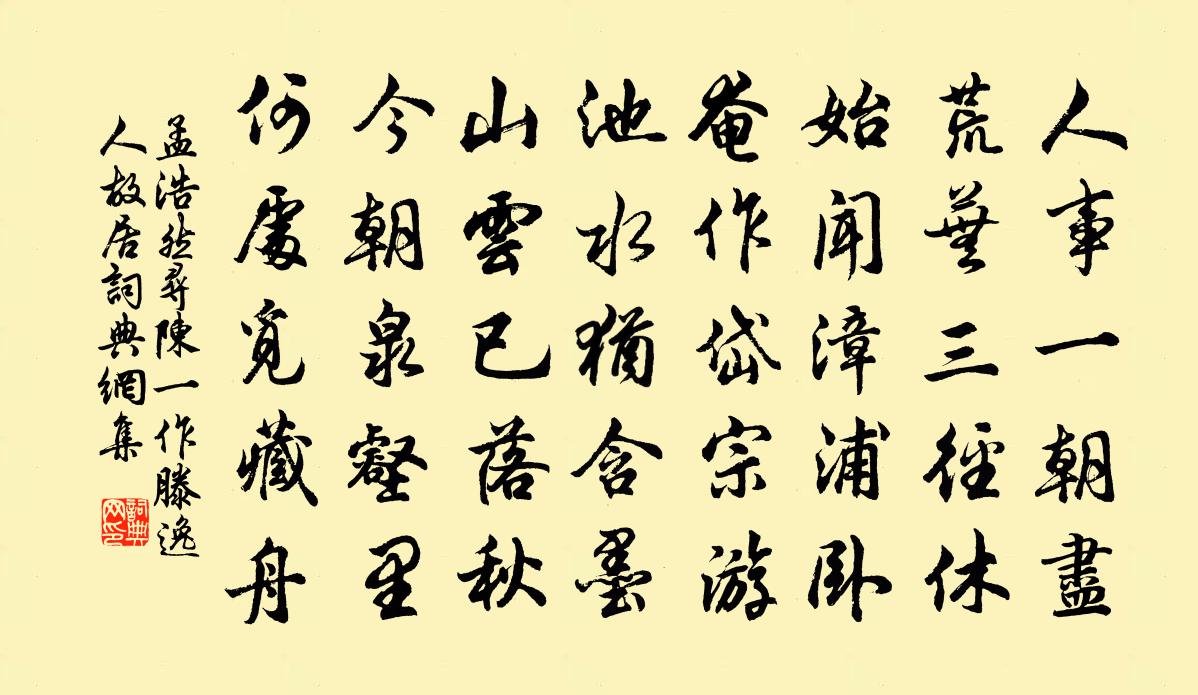 人事一朝盡
荒蕪三徑休
始聞漳浦臥
奄作岱宗游
池水猶含墨
山雲已落秋
今朝泉壑里
何處覓藏舟
孟浩然尋陳一作滕逸
人故居詞典網集
詞典网印